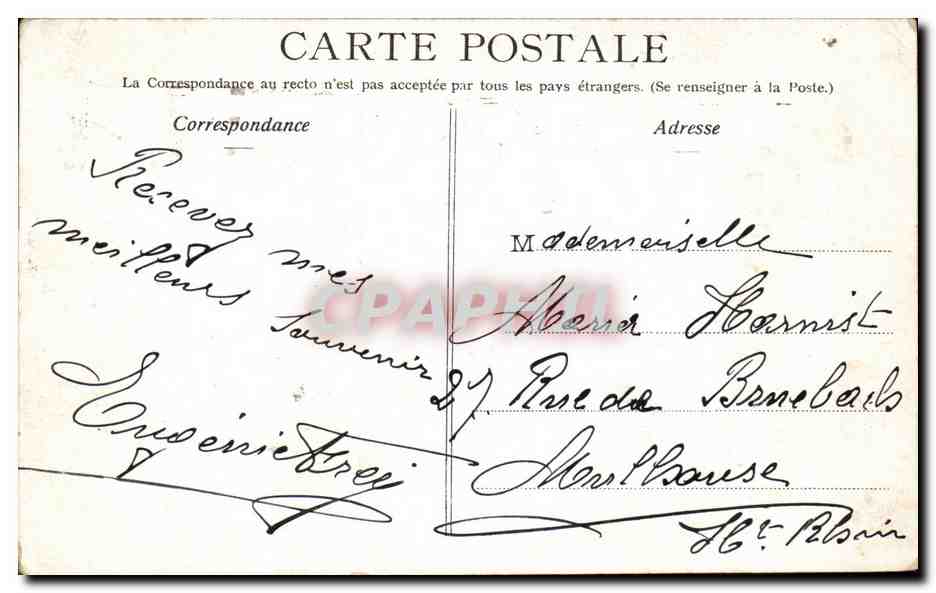 CARTE POSTALE
La Correspondance au recto n'est pas acceptée par tous les pays étrangers. (Se renseigner à la Poste.)
Correspondance
Recevez mes
meilleurs souvenir
Eugénie Frey
Adresse
Mademoiselle
Maria Harnist
27. Rue de Brubach
Mulhouse
Ht. Rhin
CPAPHIL